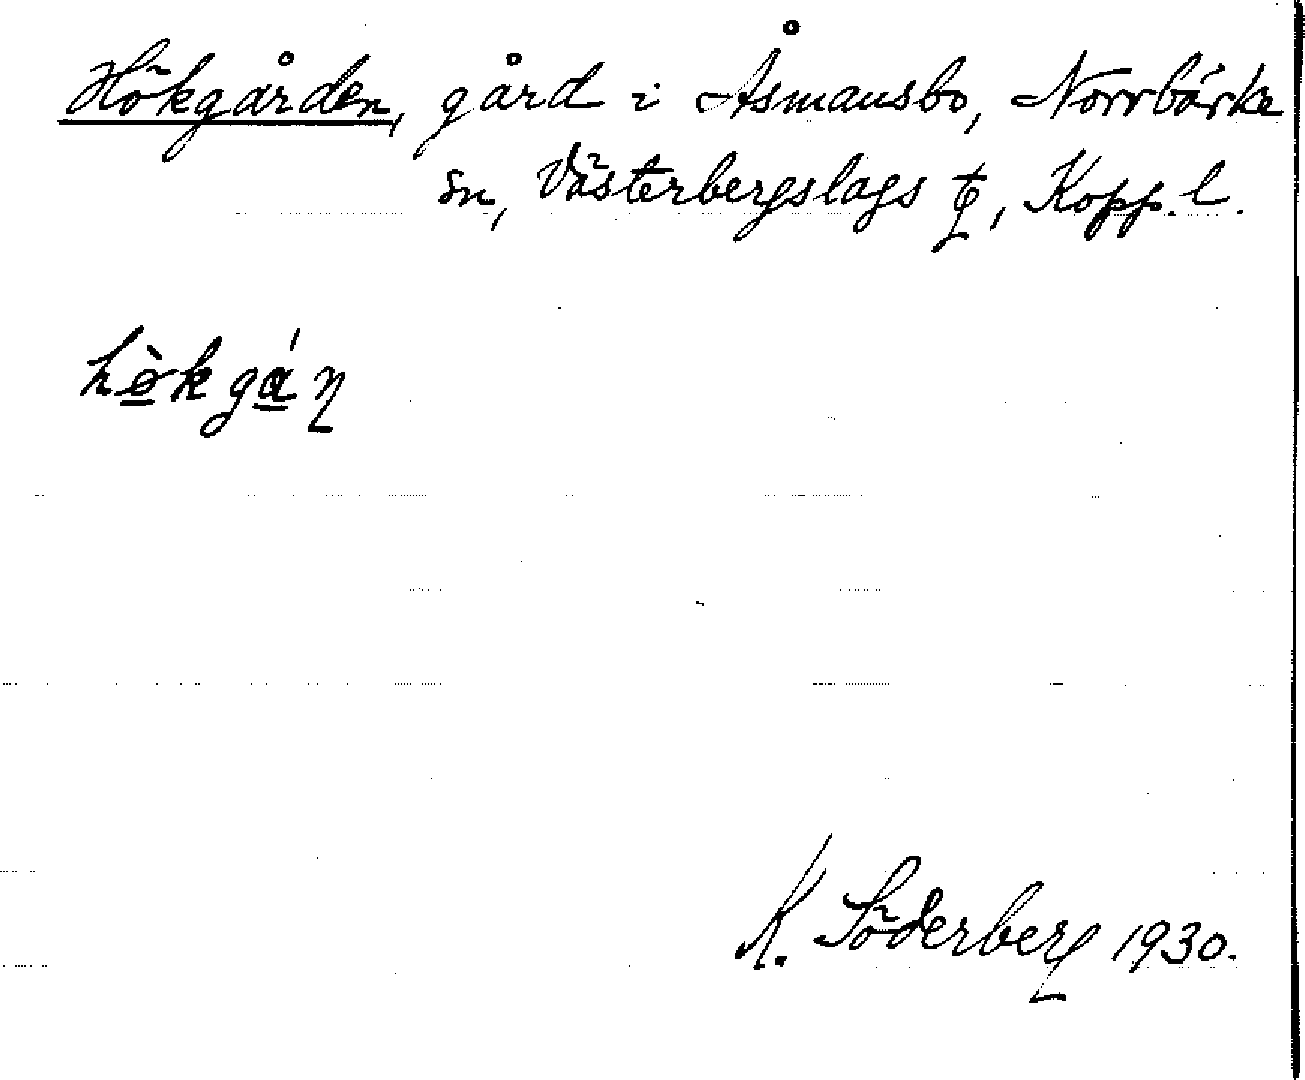 Hökgården, gård i Åsmansbo, Norrbärke
sn, Västerbergslags tg, Kopp. l.
hö̀kgán
K. Söderberg 1930.